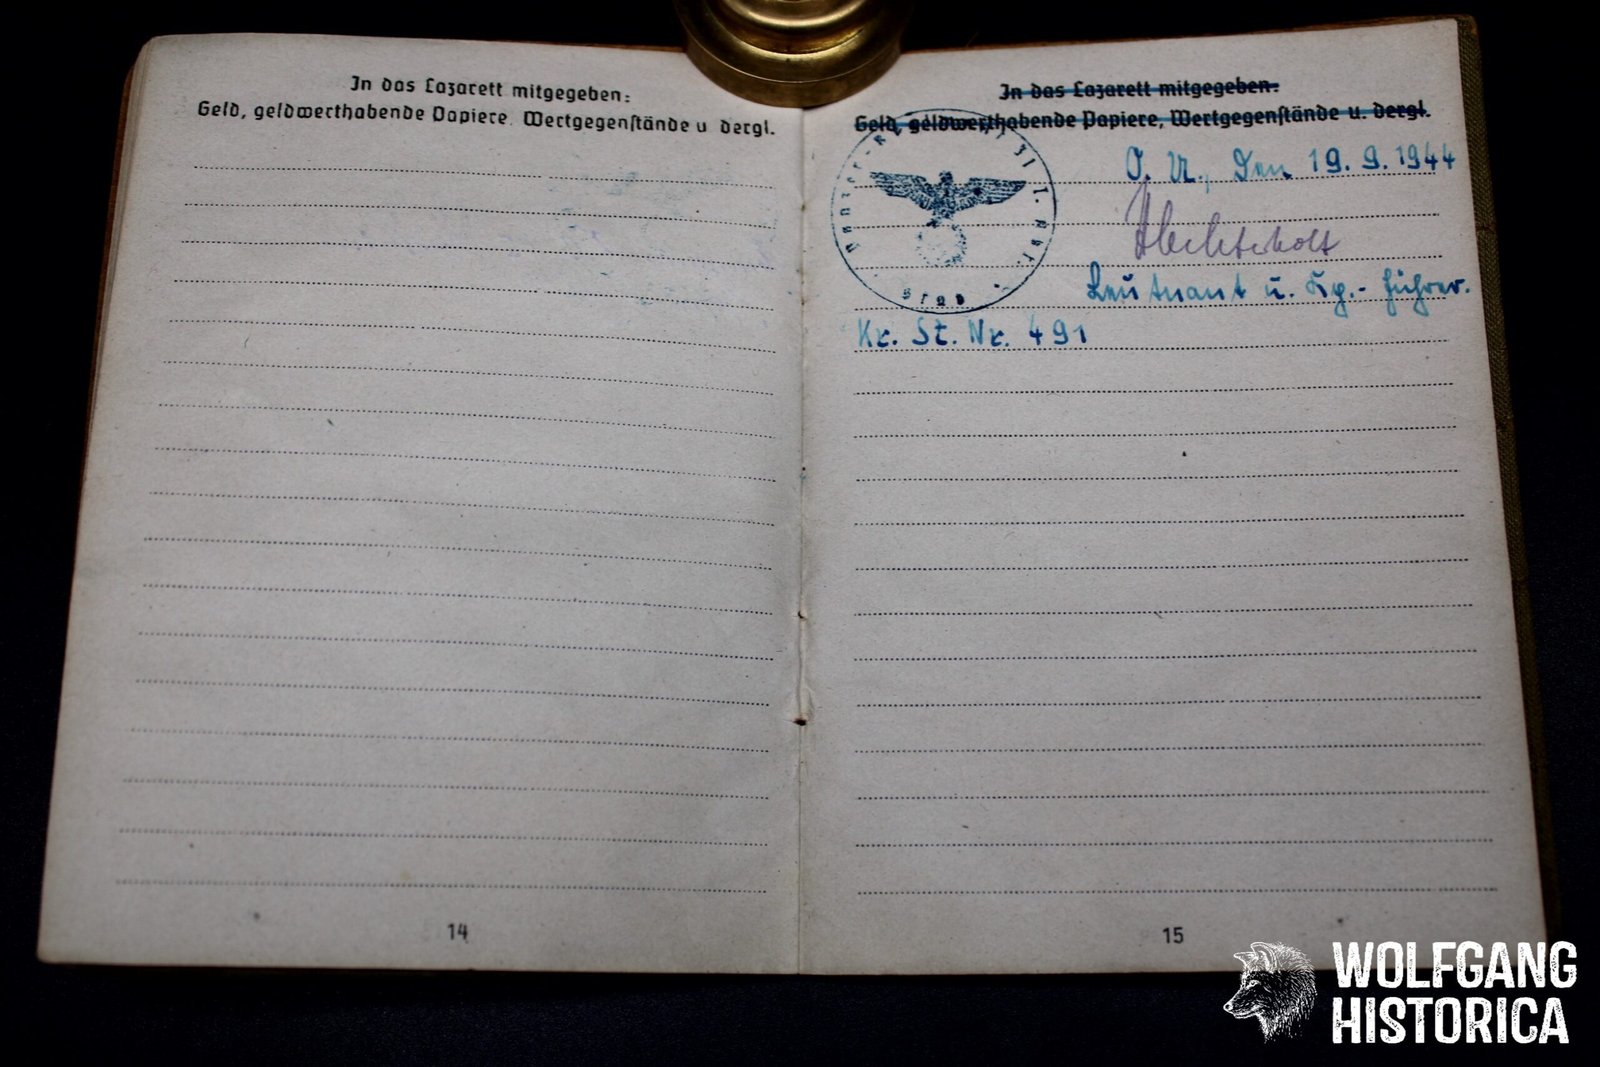 In das Lazarett mitgegeben:
Geld, geldwerthabende Papiere, Wertgegenstände u. dergl.
14
In das Lazarett mitgegeben:
Geld, geldwerthabende Papiere, Wertgegenstände u. dergl.
O. U., den 19. 9. 1944
Leutnant u. Kp.-Führer.
Kr. St. Nr. 491
Panzer- 31 I. Abt.
Stab
15
WOLFGANG
HISTORICA